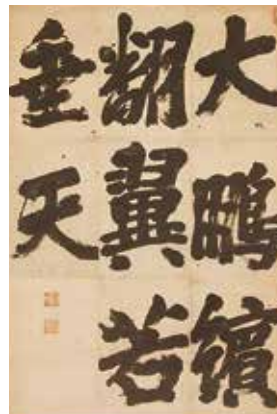 大鵬繽
翻翼若
垂天